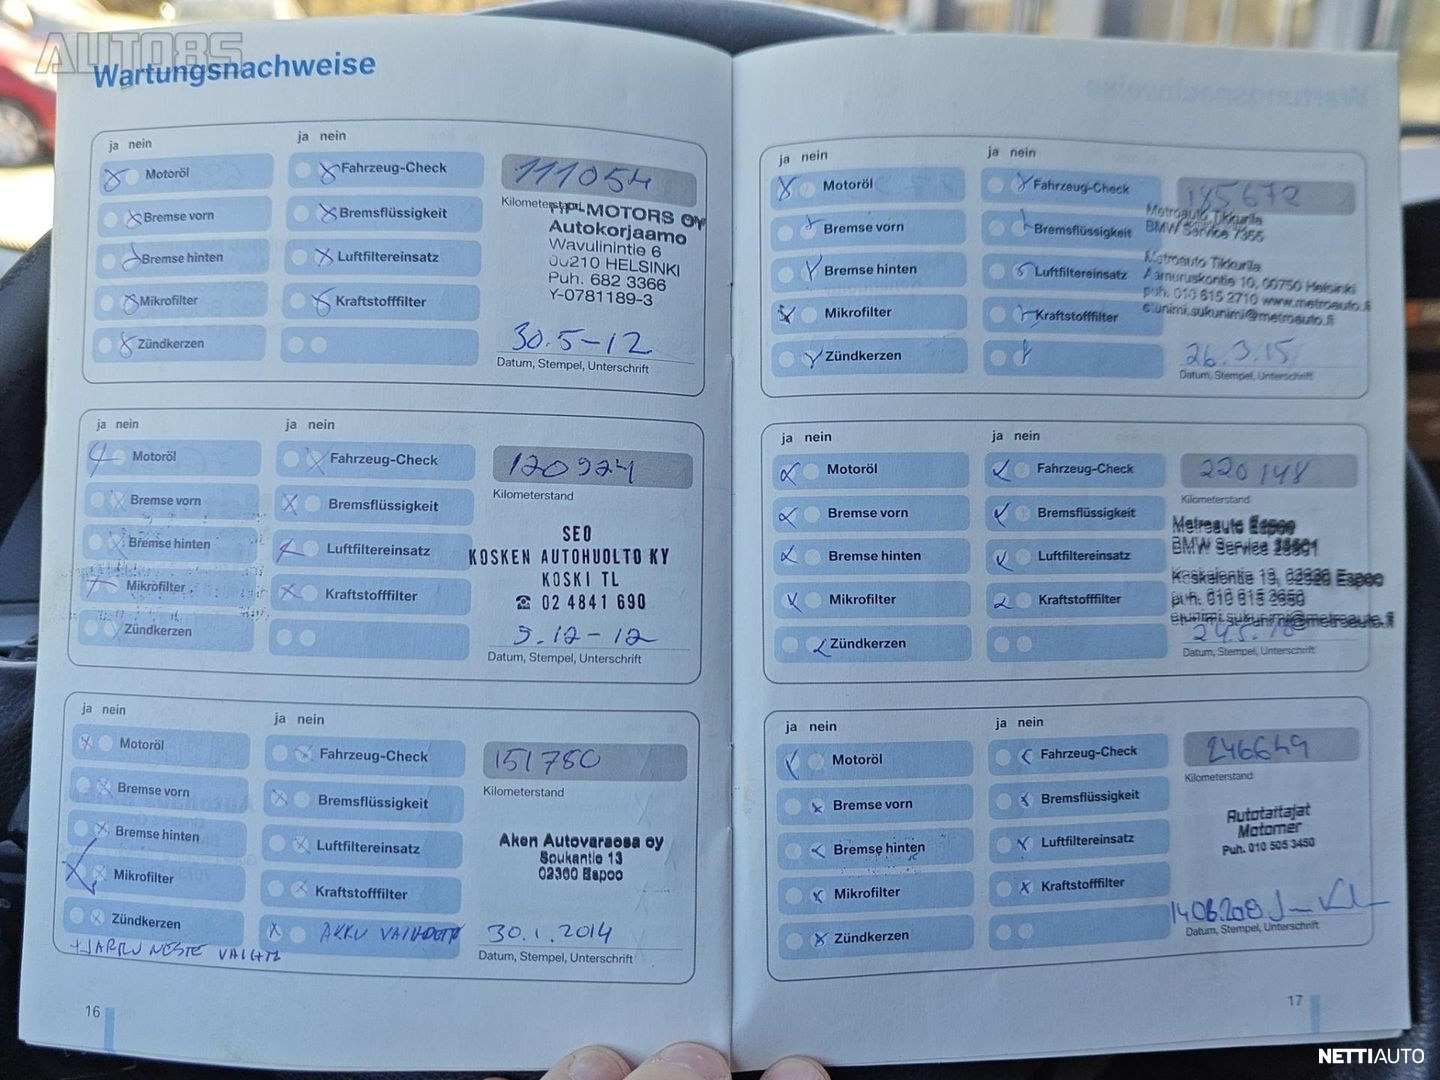 AUTO85
Wartungsnachweise
ja nein
ja nein
Motoröl
Fahrzeug-Check
111054
Bremse vorn
Bremsflüssigkeit
Kilometerstand
HP-MOTORS OY
Autokorjaamo
Wavulinintie 6
00210 HELSINKI
Puh. 682 3366
Y-0781189-3
Bremse hinten
Luftfiltereinsatz
Mikrofilter
Kraftstofffilter
Zündkerzen
30.5-12
Datum, Stempel, Unterschrift
ja nein
ja nein
Motoröl
Fahrzeug-Check
120924
Kilometerstand
Bremse vorn
Bremsflüssigkeit
Bremse hinten
Luftfiltereinsatz
SEO
KOSKEN AUTOHUOLTO KY
KOSKI TL
☎ 02 4841 690
Mikrofilter
Kraftstofffilter
Zündkerzen
9.12-12
Datum, Stempel, Unterschrift
ja nein
ja nein
Motoröl
Fahrzeug-Check
151780
Kilometerstand
Bremse vorn
Bremsflüssigkeit
Bremse hinten
Luftfiltereinsatz
Aken Autovaraosa oy
Soukantie 13
02360 Espoo
Mikrofilter
Kraftstofffilter
Zündkerzen
AKKU
30.1.2014
+JARRU NESTE
Datum, Stempel, Unterschrift
16
ja nein
ja nein
Motoröl
Fahrzeug-Check
185672
Bremse vorn
Bremsflüssigkeit
Metroauto Tikkurila
BMW Service 7355
Metroauto Tikkurila
Aamuruskontie 10, 00750 Helsinki
puh. 010 615 2710 www.metroauto.fi
etunimi.sukunimi@metroauto.fi
Bremse hinten
Luftfiltereinsatz
Mikrofilter
Kraftstofffilter
Zündkerzen
26.3.15
Datum, Stempel, Unterschrift
ja nein
ja nein
Motoröl
Fahrzeug-Check
220148
Kilometerstand
Bremse vorn
Bremsflüssigkeit
Metroauto Espoo
BMW Service
Bremse hinten
Luftfiltereinsatz
Koskelontie 13, 02920 Espoo
puh. 010 615 2650
etunimi.sukunimi@metroauto.fi
Mikrofilter
Kraftstofffilter
Zündkerzen
Datum, Stempel, Unterschrift
ja nein
ja nein
Motoröl
Fahrzeug-Check
246649
Kilometerstand
Bremse vorn
Bremsflüssigkeit
Autotaitajat
Motomer
Puh. 010 505 3450
Bremse hinten
Luftfiltereinsatz
Mikrofilter
Kraftstofffilter
Zündkerzen
Datum, Stempel, Unterschrift
17
NETTIAUTO